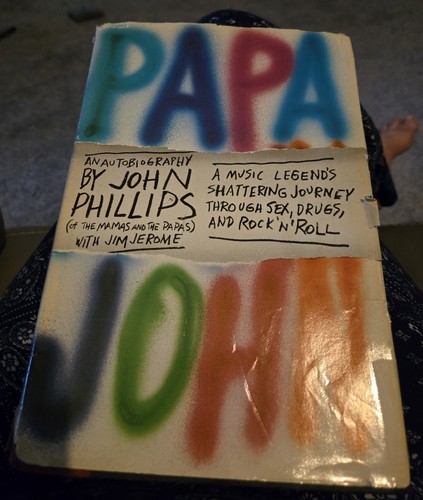 PAPA
AN AUTOBIOGRAPHY
BY JOHN
PHILLIPS
(OF THE MAMAS AND THE PAPAS)
WITH JIM JEROME
A MUSIC LEGEND'S
SHATTERING JOURNEY
THROUGH SEX, DRUGS,
AND ROCK'N'ROLL
JOHN